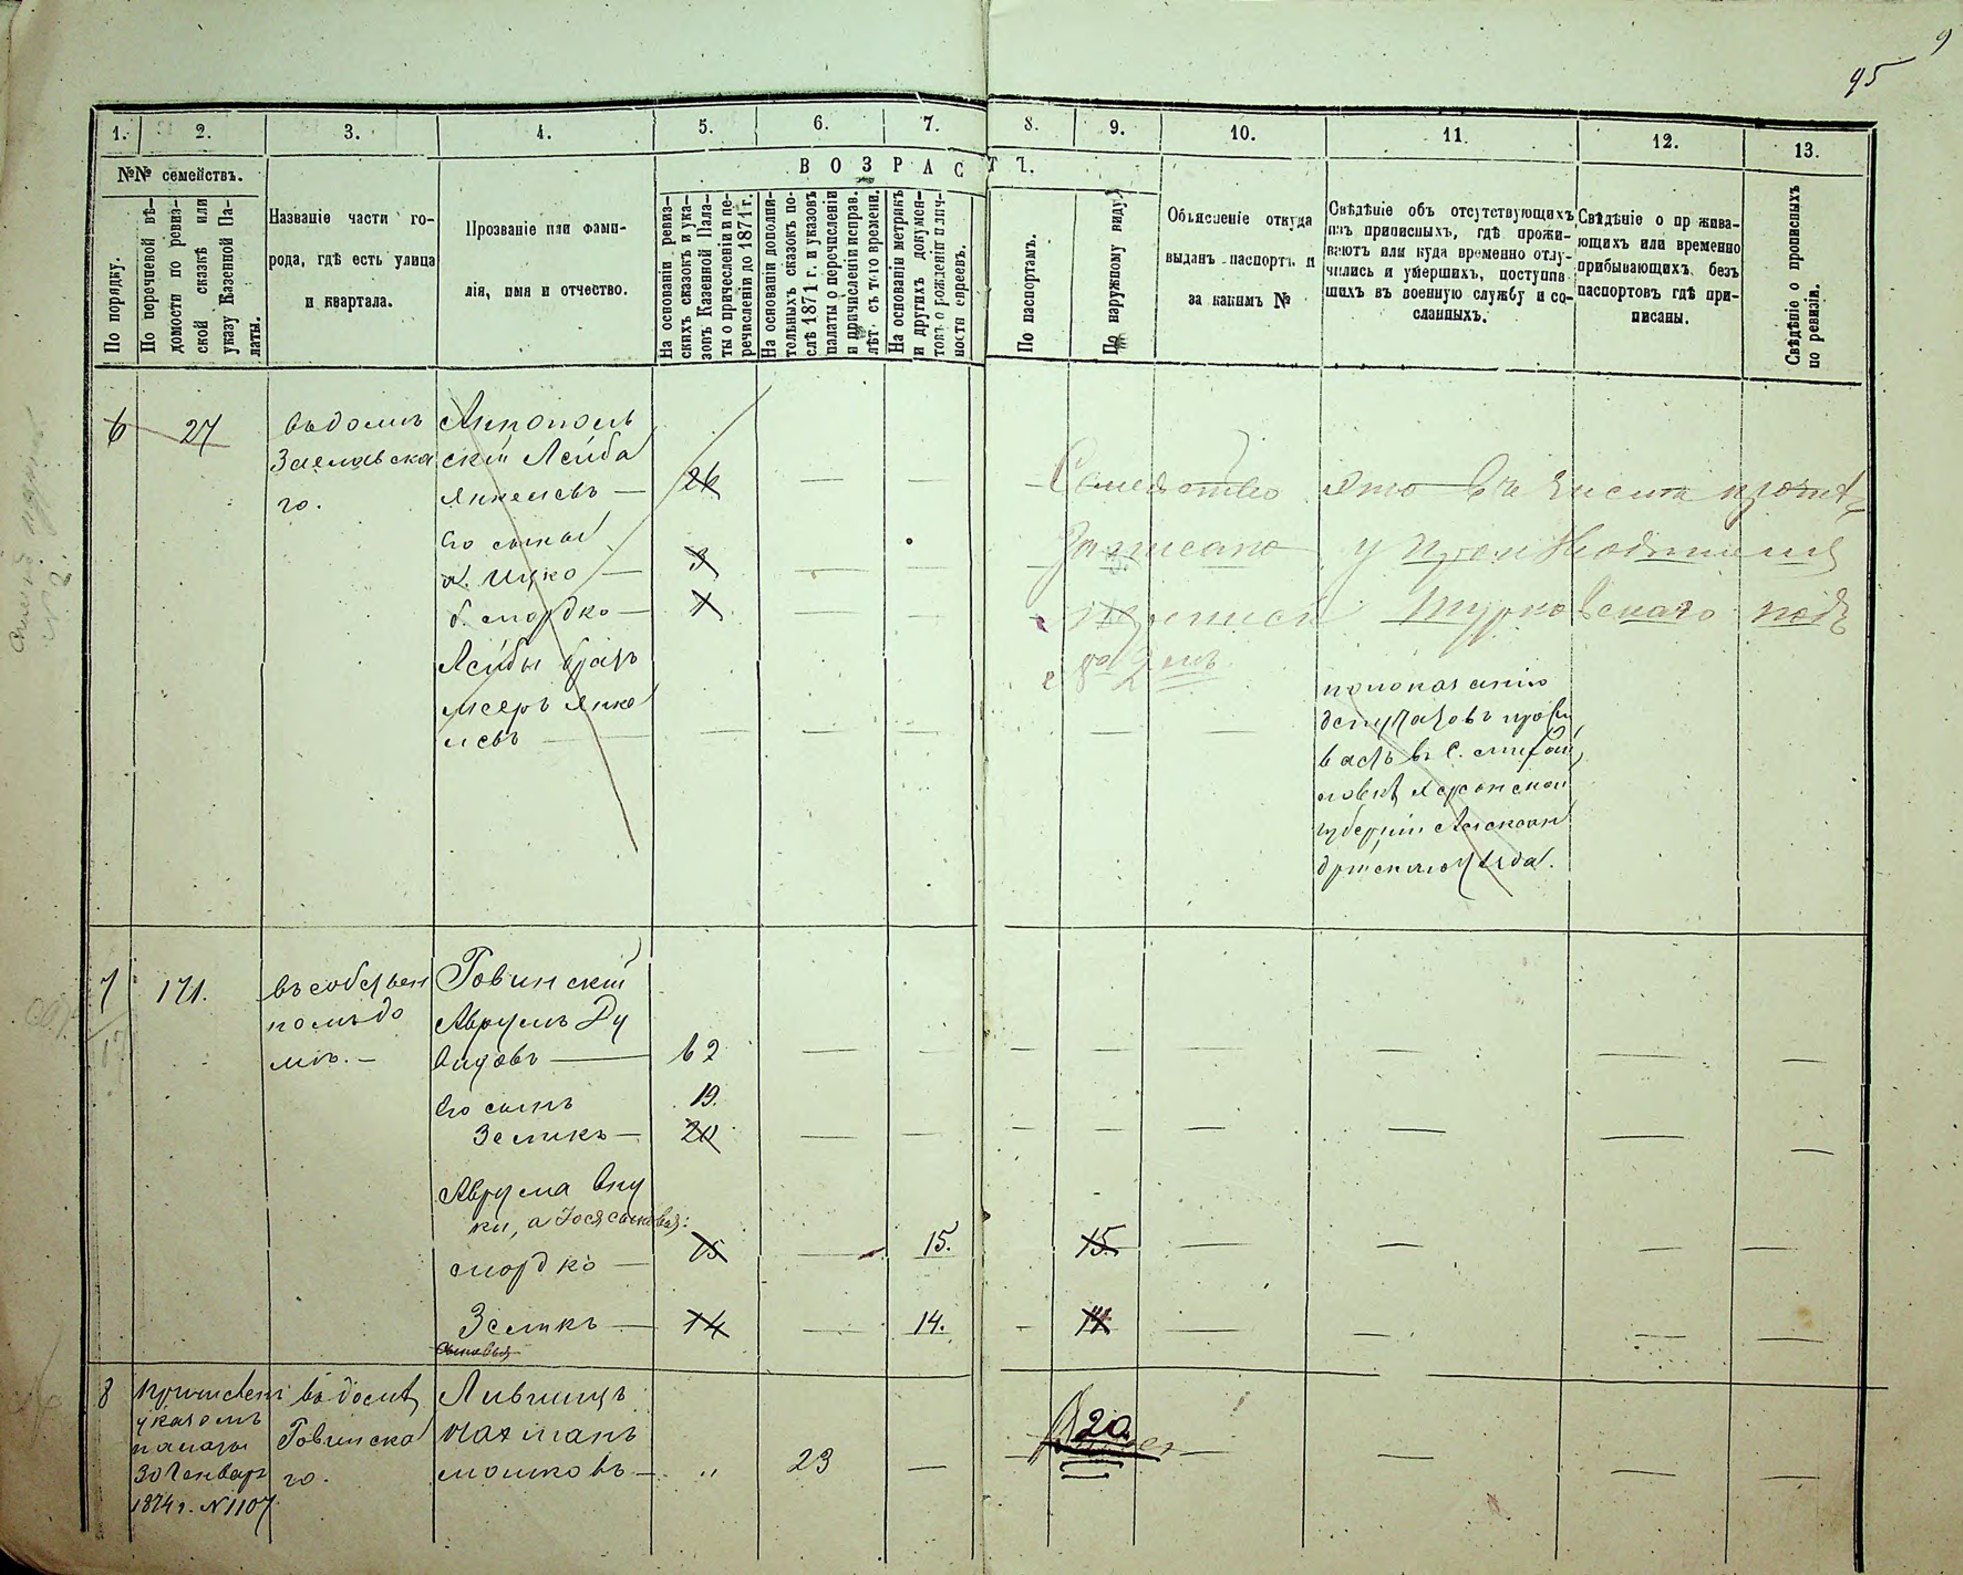 9
95
1. 2. 3. 4. 5. 6. 7. 8. 9. 10. 11. 12. 13.
№№ семействъ.
ВОЗРАСТЪ.
По порядку.
По поречневой вѣ-
домости по ревиз-
ской сказкѣ или
указу Казенной Па-
латы.
Названіе части го-
рода, гдѣ есть улица
и квартала.
Прозваніе или фами-
лія, имя и отчество.
На основаніи ревиз-
скихъ сказокъ и ука-
зовъ Казенной Пала-
ты о причисленіи и пе-
речисленіи до 1871 г.
На основаніи дополни-
тольныхъ сказокъ по-
слѣ 1871 г. и указовъ
палаты о перечисленіи
и причисленіи исправ.
лѣт съ того времени.
На основаніи метрикъ
и другихъ докумен-
товъ о рожденіи и лич-
ности евреевъ.
По паспортамъ.
По наружному виду.
Объясненіе откуда
выданъ паспортъ и
за какимъ №
Свѣдѣніе объ отсутствующихъ
изъ приписныхъ, гдѣ прожи-
ваютъ или куда временно отлу-
чились и умершихъ, поступив-
шихъ въ военную службу и со-
сланныхъ.
Свѣдѣніе о пр жива-
ющихъ или временно
прибывающихъ безъ
паспортовъ гдѣ при-
писаны.
Свѣдѣніе о прописныхъ
по ревизіи.
6 27
въ домѣ
Заславска
го.
Аннополь
скій Лейба
Янкелевъ — 26 — —
Его сыны
а. Ицко — 3 — —
б. Мордко — 1 — —
Лейбы братъ
Мееръ Янке
левъ — — — — — —
Семейство это въ числѣ
Записано у
Турковскаго подъ
№ 2
по показанію
депутатовъ прожи
ваетъ въ С. Михай
ловкѣ Херсонской
губерніи Алексан
дрійскаго уѣзда.
7 171.
въ собствен
номъ до
мѣ. —
Говинскій
Аврумъ Ду
видовъ — 62 — — — — — — — —
Его сынъ 19.
Зеликъ — 20 — — — — — — — —
Аврума вну
ки, а Іося сыновья:
Мордко — 15 — 15. 15. — — — —
Зеликъ — 14 — 14. — 14 — — — —
сыновья
8
Причислен
указомъ
палаты
30 Генвар
1874 г. № 1107
въ домѣ
Говинска
го.
Лившицъ
Нахманъ
Мошковъ — „ 23 — — 20. — — — —